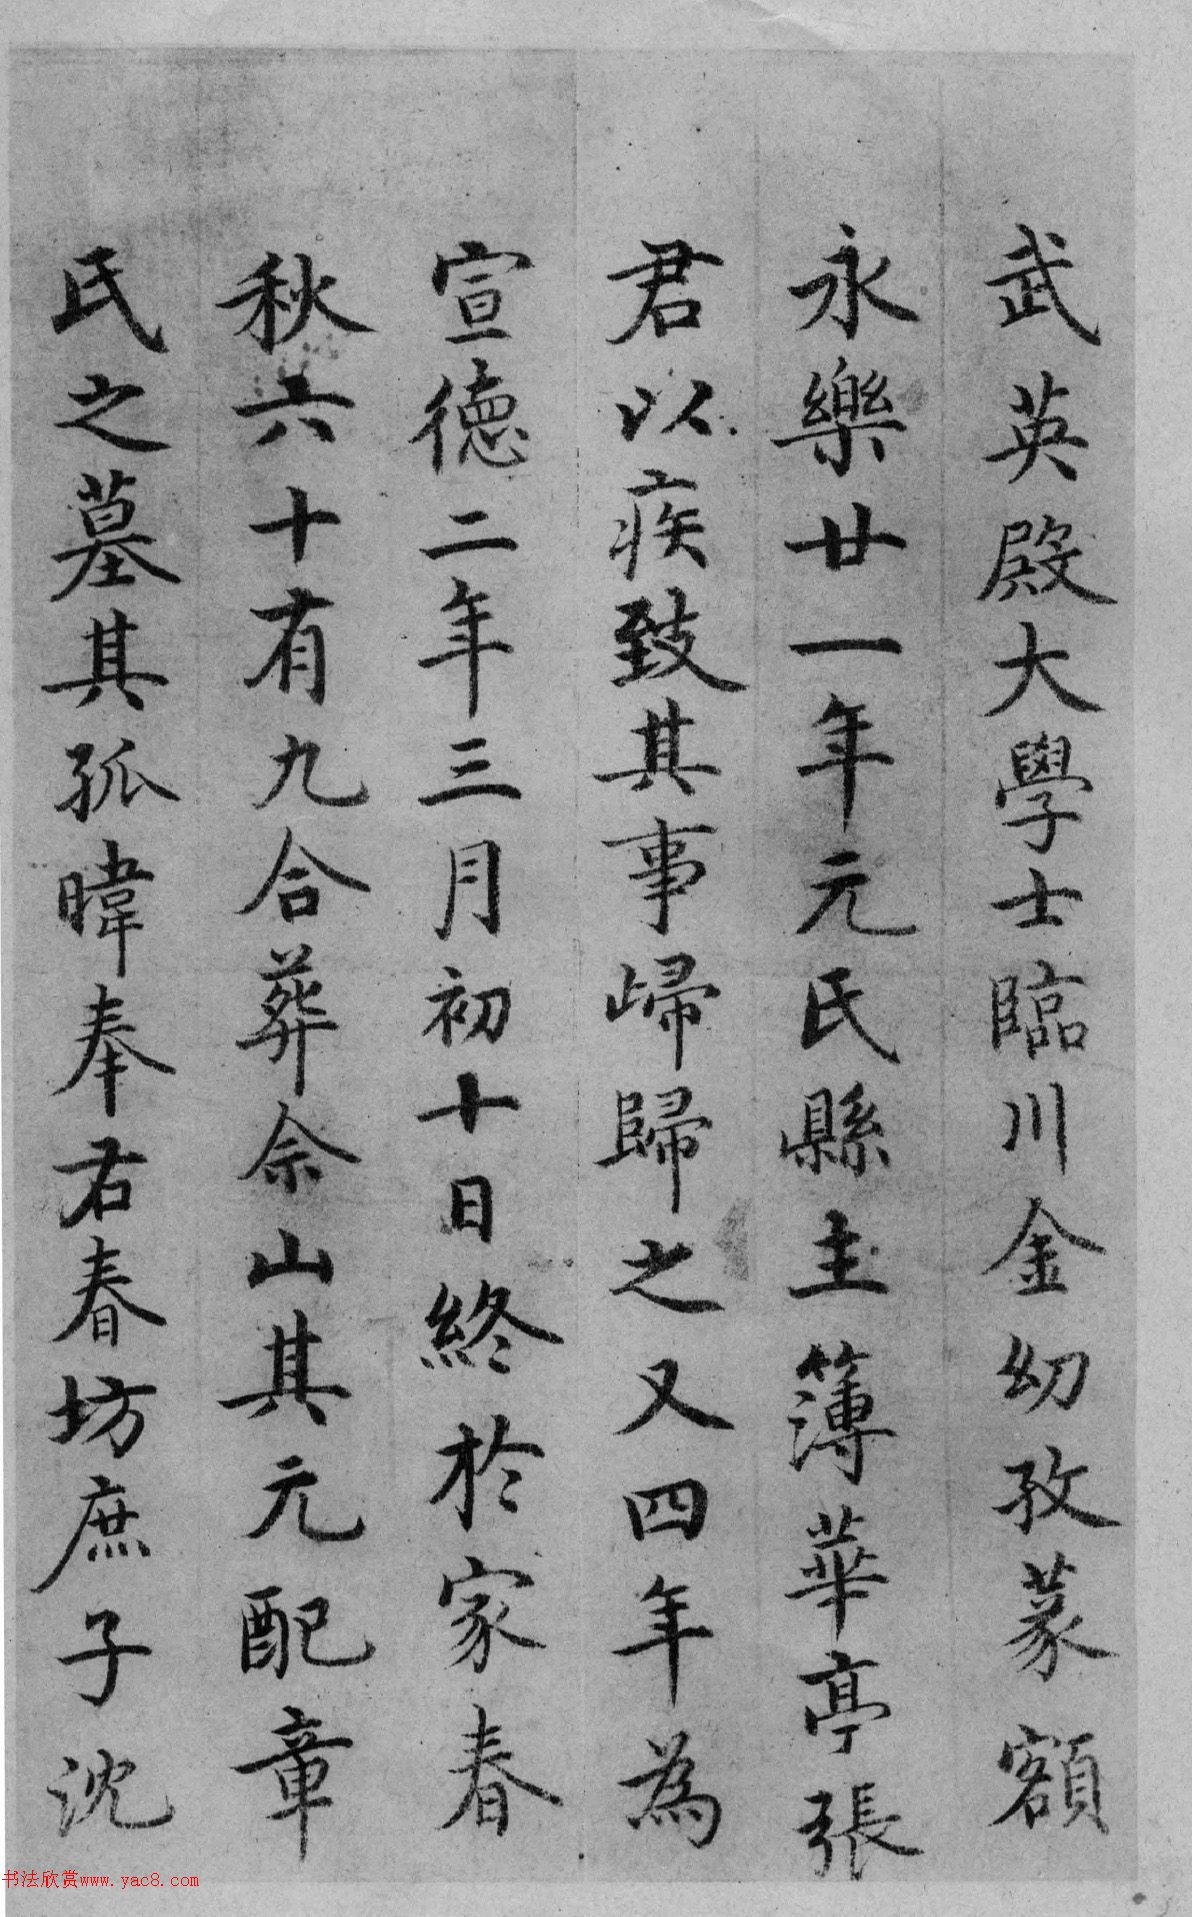 武英殿大學士臨川金幼孜篆額
永樂廿一年元氏縣主簿華亭張
君以疾致其事歸歸之又四年為
宣德二年三月初十日終於家春
秋六十有九合葬佘山其元配章
氏之墓其孤暐奉右春坊庶子沈
书法欣赏www.yac8.com